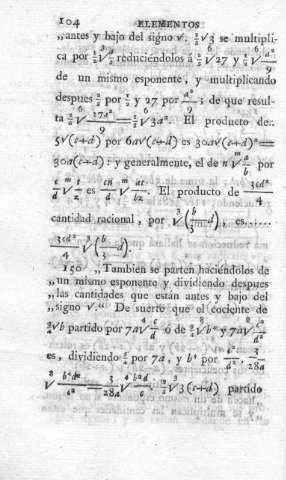 104 ELEMENTOS
„antes y bajo del signo √. 2/2 √3 se multipli-
ca por reduciéndolos á √27 y
de un mismo esponente, y multiplicando
despues por y 27 por a²/9 ; de que resul-
ta √27a²/9 = √3a². El producto de
5√(c+d) por 6a√(c+d) es 30a√(c+d)² =
30a(c+d) : y generalmente, el de n √a/b por
es El producto de 3cd²/4
cantidad racional, por ∛(b/3 — d), es......
3cd²/4 ∛(b/3 — d).
150 „Tambien se parten haciéndolos de
„un mismo esponente y dividiendo despues
„las cantidades que están antes y bajo del
„signo √.“ De suerte que el cociente de
√b partido por 7a√c/d ó de √b² y 7a√c²/d²
es, dividiendo por 7a, y b² por
= 3/28a 3(c+d) partido